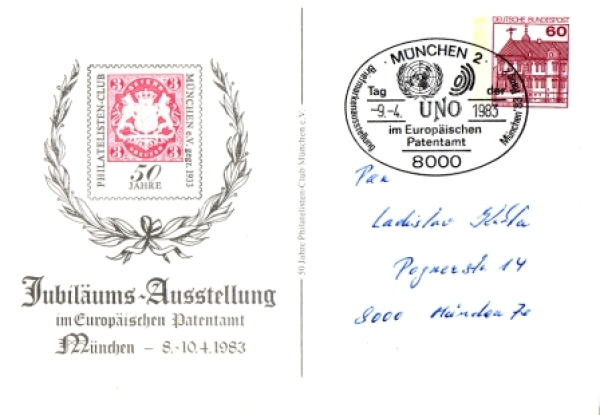 PHILATELISTEN-CLUB
MÜNCHEN e.V. gegr. 1933
3 3
3 3
50
JAHRE
Jubiläums-Ausstellung
im Europäischen Patentamt
München – 8.-10.4.1983
50 Jahre Philatelisten-Club München e.V.
DEUTSCHE BUNDESPOST
60
MÜNCHEN 2
Briefmarkenausstellung
München 83
Tag der
-9.-4. UNO 1983
im Europäischen
Patentamt
8000
Pan
Ladislav
Pognerstr 14
8000 München 70